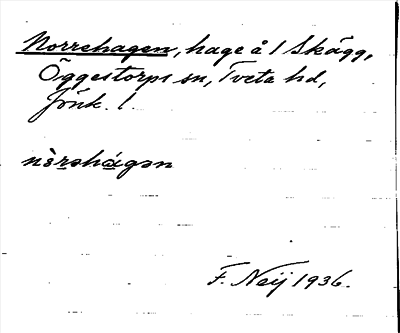 Norrehagen, hage å 1 Skägg,
Öggestorps sn, Tveta hd,
Jönk. l.
nòrəhágən
F. Neij 1936.